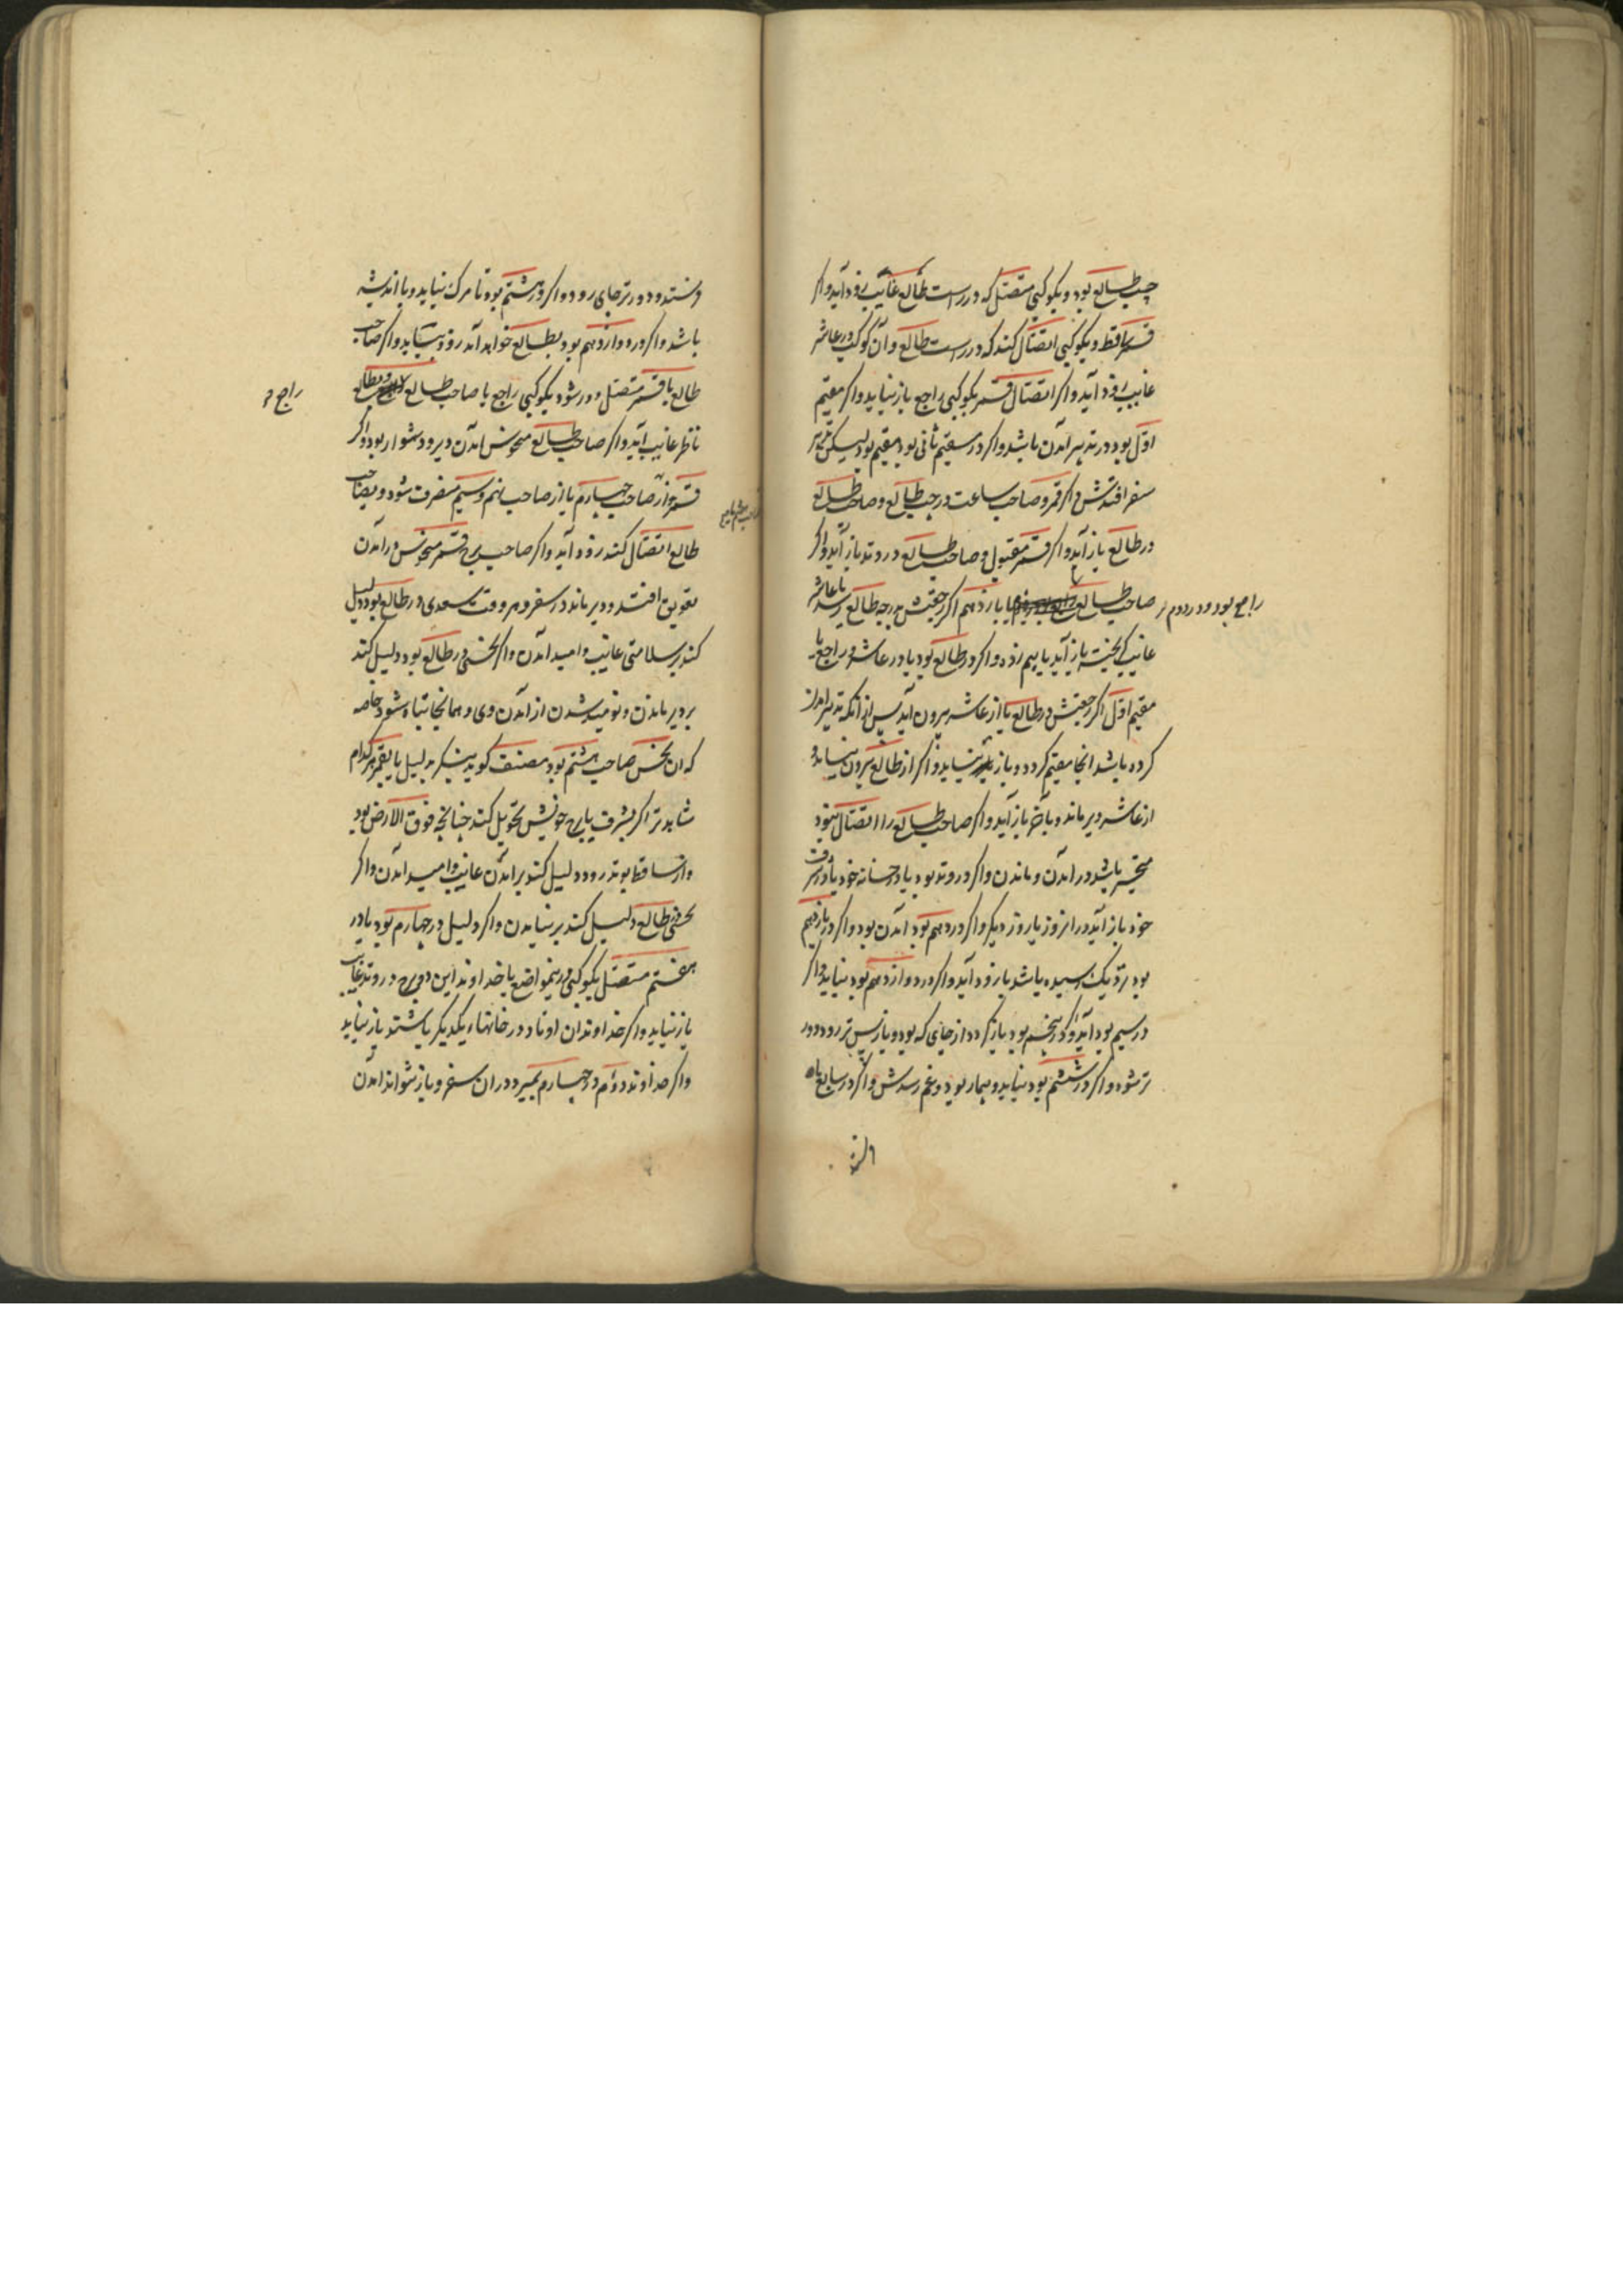 چپ طالع بود و بکوکبی متصل که در راست طالع غایب زود آید و اکر
قمر ساقط و بکوکبی اتصال کند که در راست طالع و آن کوکب در عاشر
غایب زود آید و اکر اتصال قمر بکوکبی راجع باز نیاید و اکر مقیم
اول بود در تدبیر آمدن باشد و اکر در مقیم ثانی بود مقیم بود لیکن
سفر افتدش و اکر قمر و صاحب ساعت در چپ طالع و صاحب طالع
در طالع باز آید و اکر قمر مقبول و صاحب طالع در وتد باز آید و اکر
صاحب طالع یا یازدهم اکر رجعتش بدرجه طالع رسد یا عاشر
راجع بود و در دوم
غایب کریخته باز آید یا بیم زده و اکر در طالع بود یا در عاشر و راجع یا
مقیم اول اکر رجعتش در طالع یا از عاشر بیرون آید پس از آنکه تدبیر آمدن
کرده باشد آنجا مقیم کردد و باز نیاید و اکر از طالع بیرون نیاید و
از عاشر دیر ماند و بآخر باز آید و اکر صاحب طالع را اتصال نبود
متحیر باشد در آمدن و ماندن و اکر در وتد بود یا در خانه خود یا در شرف
خود باز آید در آن روز یا روز دیکر و اکر در دهم بود آمدن بود و اکر در یازدهم
بود نزدیک رسیده باشد یا زود آید و اکر در دوازدهم بود نیاید و اکر
در سیم بود آید و اکر در پنجم بود باز کردد از جای که بود و باز پس تر رود و دور
تر شود و اکر در ششم بود نیاید و بیمار بود و غم رسدش و اکر در سابع
و دورتر جای رود و اکر در هشتم بود تا مرک نیاید و با اندیشه
باشد و اکر در دوازدهم بود بطالع خواهد آمد زود بیاید و اکر صاحب
طالع یا قمر متصل و در شود بکوکبی راجع یا صاحب طالع و بطالع
راجع
ناظر غایب آید و اکر صاحب طالع منحوس آمدن دیر و دشوار بود و اکر
قمر از صاحب چهارم یا از صاحب نهم و سیم منصرف شود و بصاحب
طالع اتصال کند زود آید و اکر صاحب برج قمر منحوس در آمدن
تعویق افتد و دیر ماند در سفر و هر وقت سعدی در طالع بود دلیل
کند بر سلامتی غایب و امید آمدن و اکر نحسی در طالع بود دلیل کند
بر دیر ماندن و نومید شدن از آمدن وی و همانجا تباه شود خاصه
که آن نحس صاحب هشتم بود مصنف کوید بنکر بدلیل یا بقمر هر کدام
شاهد تر اکر بشرف یا برج خویش تحویل کند چنانچه فوق الارض بود
و از ساقط بوتد رود دلیل کند بر آمدن غایب و امید آمدن و اکر
نحسی طالع دلیل کند بر نیامدن و اکر دلیل در چهارم بود یا در
هفتم متصل بکوکبی درین مواضع یا خداوند این دو برج در وتد غایب
باز نیاید و اکر خداوندان اوتاد در خانهاء یکدیکر باشند باز نیاید
و اکر خداوند دوم در چهارم بمیرد در آن سفر و باز نتواند آمدن